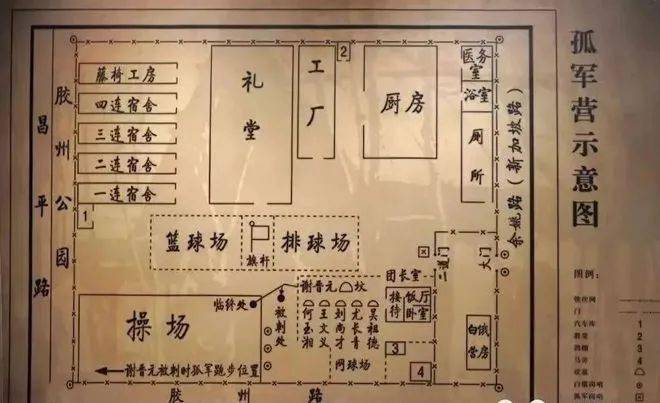 孤军营示意图
昌平路
胶州公园
藤椅工房
四连宿舍
三连宿舍
二连宿舍
一连宿舍
1
礼堂
工厂
2
厨房
医务室
浴室
厕所
余姚路（新加坡路）
篮球场
旗杆
排球场
二道门
大门
团长室
接待
饭厅
卧室
谢晋元坟
临终处
被刺处
何玉湘
王文义
刘尚才
尤长青
吴祖德
操场
谢晋元被刺时孤军跑步位置
网球场
3
4
白俄营房
胶州路
图例：
铁丝网
门
汽车库
1
2
3
马房
4
坟墓
白俄岗哨
孤军岗哨